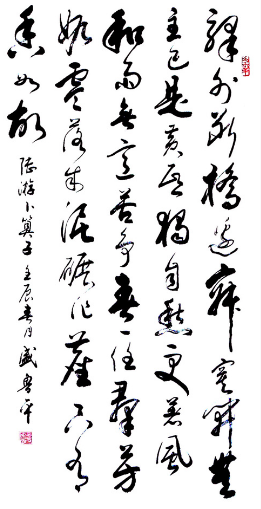 驿外断桥边寂寞开无
主已是黄昏独自愁更着风
和雨无意苦争春一任群芳
妒零落成泥碾作尘只有
香如故
陆游卜算子壬辰春月盛